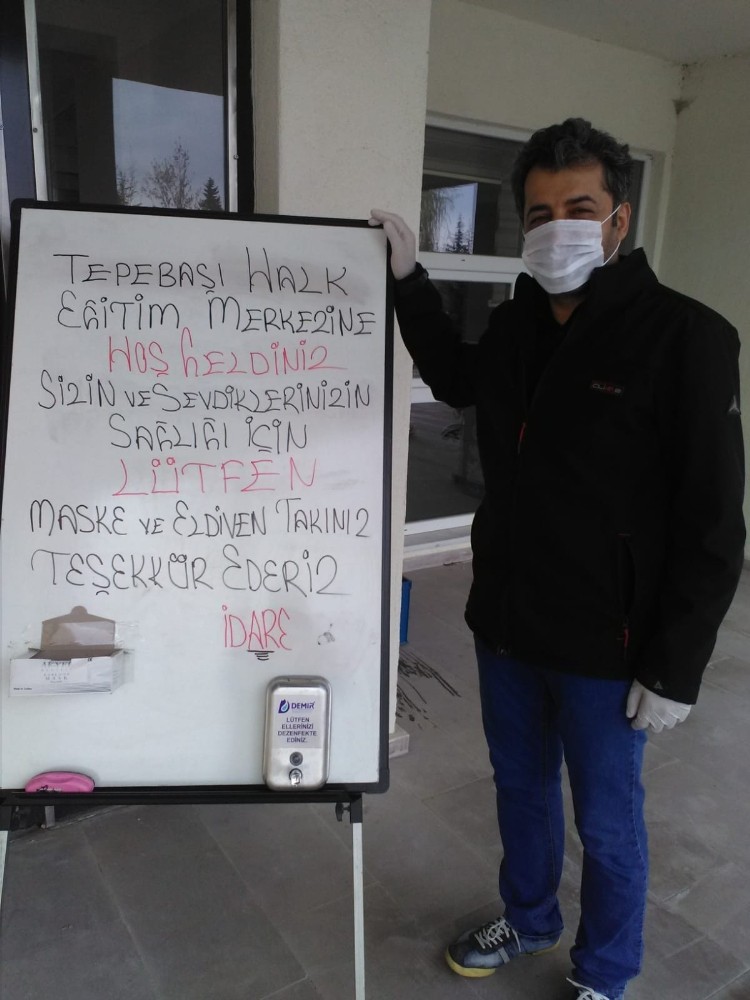 TEPEBAŞI HALK
EĞİTİM MERKEZİNE
HOŞ GELDİNİZ
SİZİN VE SEVDİKLERİNİZİN
SAĞLIĞI İÇİN
LÜTFEN
MASKE VE ELDİVEN TAKINIZ
TEŞEKKÜR EDERİZ
İDARE
DEMİR
LÜTFEN
ELLERİNİZİ
DEZENFEKTE
EDİNİZ.